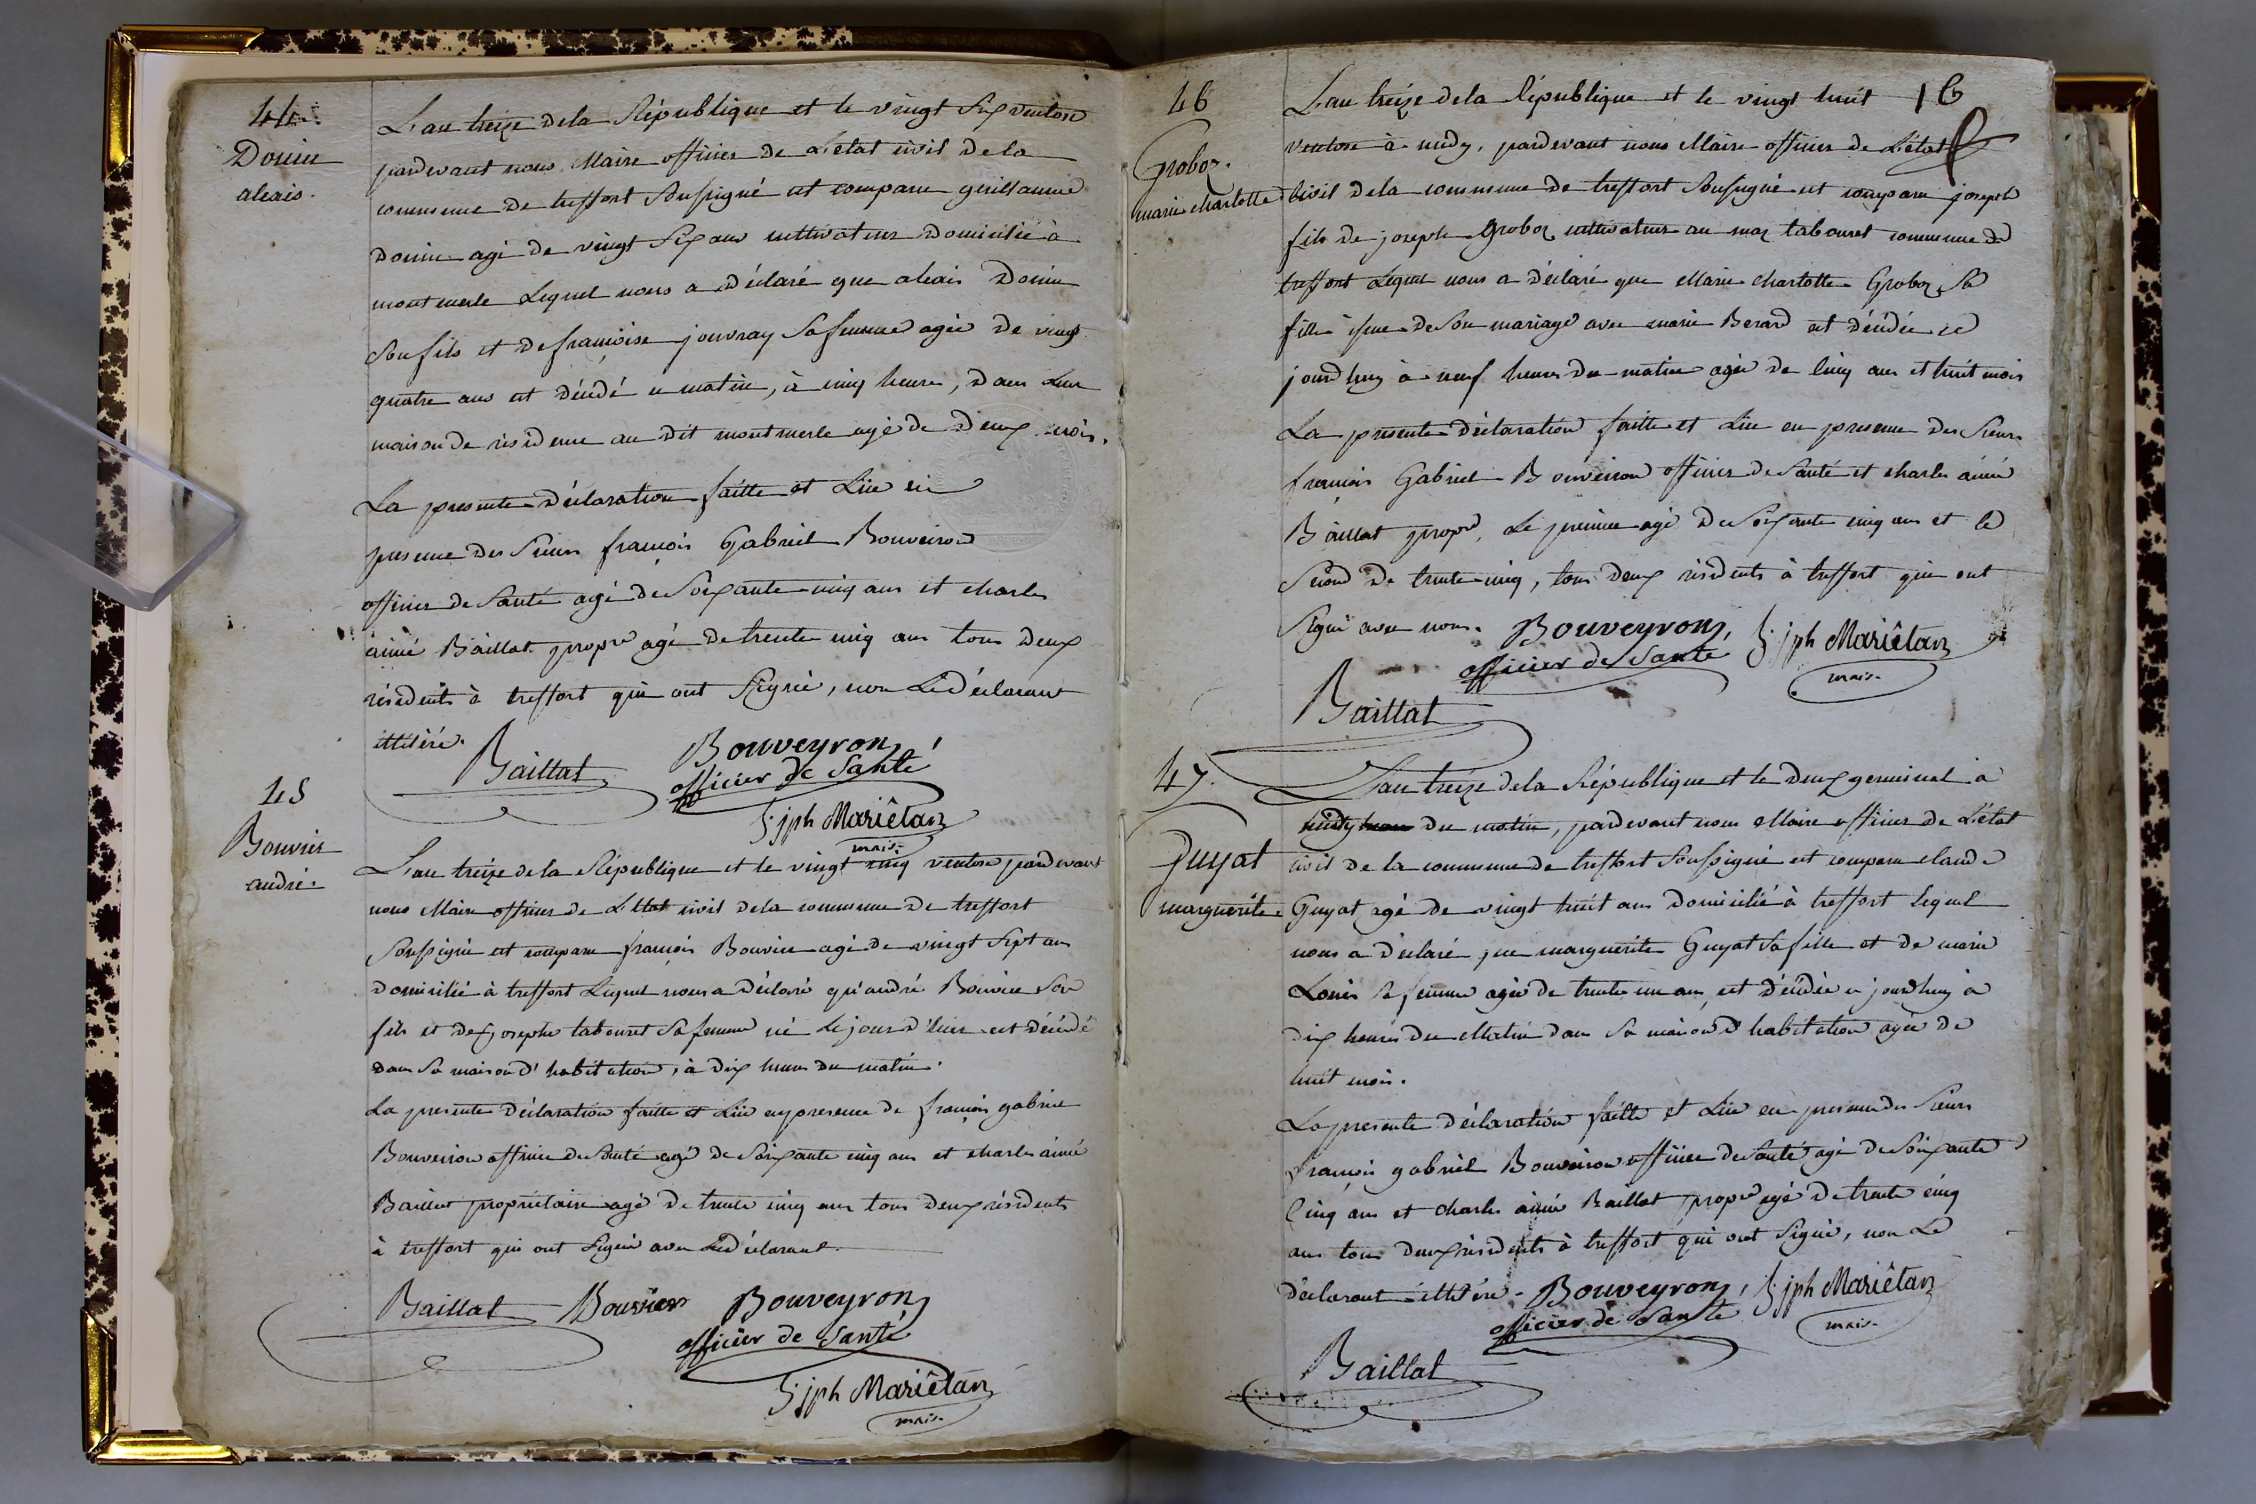 44
Donin
alexis.
L'an treize dela République et le vingt six ventose
pardevant nous Maire officier de L'état civil dela
commune de treffort Soussigné est comparu guillaume
Donin agé de vingt Six ans cultivateur Domicilié à
montmerle Lequel nous a déclaré que alexis Donin
Son fils et de françoise jouvray Sa femme agée de vingt
quatre ans est décédé ce matin, à cinq heures, dans Leur
maison de résidence au dit montmerle agé de Deux mois.
La presente déclaration faitte et Lüe en
presence des Sieurs françois Gabriel Bouveiron
officier de Santé agé de Soixante cinq ans et charles
aimé Baillat propre agé de trente cinq ans tous Deux
résidents à treffort qui ont Signé, non Le déclarant
illitéré.
Baillat
Bouveyron,
officier de Santé
jph Mariêtan
maire
45
Bouvier
andré.
L'an treize dela République et le vingt cinq ventose pardevant
nous Maire officier de L'Etat civil dela commune de treffort
Soussigné est comparu françois Bouvier agé de vingt Sept ans
domicilié à treffort Lequel nous a déclaré qu'andré Bouvier Son
fils et de josephe tabouret Sa femme né Le jour d'hier est décédé
dans Sa maison d'habitation, à dix heures du matin.
La presente déclaration faitte et Lüe en presence de françois gabriel
Bouveiron officier de Santé agé de Soixante cinq ans et charles aimé
Baillat propriétaire agé de trente cinq ans tous Deux résidents
à treffort qui ont Signé avec Le déclarant.
Baillat Bouvier Bouveyron
officier de Santé
jph Mariêtan
maire
46
Groboz.
marie charlotte
16
L'an treize dela République et le vingt huit
ventose à midy, pardevant nous Maire officier de L'état
Civil dela commune de treffort Soussigné est comparu joseph
fils de joseph Groboz cultivateur au maz tabouret commune de
treffort Lequel nous a déclaré que Marie charlotte Groboz Sa
fille issue de Son mariage avec marie Berard est décédée ce
jourd'huy à neuf heures du matin agée de Cinq ans et huit mois
La presente déclaration faitte et Lüe en presence des Sieurs
françois Gabriel Bouveiron officier de Santé et charles aimé
Baillat propre, Le premier agé de Soixante cinq ans et le
Second de trente cinq, tous Deux résidents à treffort qui ont
Signé avec nous. Bouveyron,
officier de Santé
jph Mariêtan
maire
Baillat
47.
Guyat
marguerite
L'an treize dela République et le Deux germinal à
du matin, pardevant nous Maire officier de L'état
Civil de la commune de treffort Soussigné est comparu claude
Guyat agé de vingt huit ans Domicilié à treffort Lequel
nous a déclaré, que marguerite Guyat Sa fille et de marie
Louis Sa femme agée de trente un ans, est décédée ce jourdhuy à
dix heures du Matin dans Sa maison d'habitation agée de
huit mois.
La presente déclaration faitte et Lüe en presence des Sieurs
françois gabriel Bouveiron officier de Santé agé de Soixante
Cinq ans et charles aimé Baillat propre agé de trente cinq
ans tous deux résidents à treffort qui ont Signé, non Le
déclarant illitéré. Bouveyron,
officier de Santé
jph Mariêtan
maire
Baillat